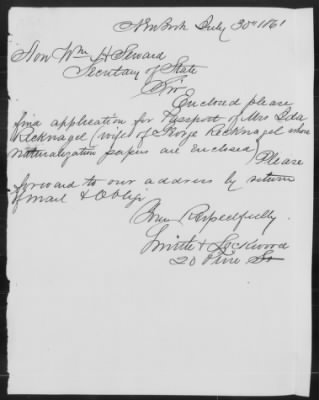 New York July 30th 1861
Hon Wm H Seward
Secretary of State
Sir
Enclosed please
find application for Passport of Mrs Ida
Recknagel (wife of George Recknagel whose
Naturalization papers are enclosed) Please
forward to our address by return
of mail & Oblige
Very Respectfully
Smith & Lockwood
20 Pine St